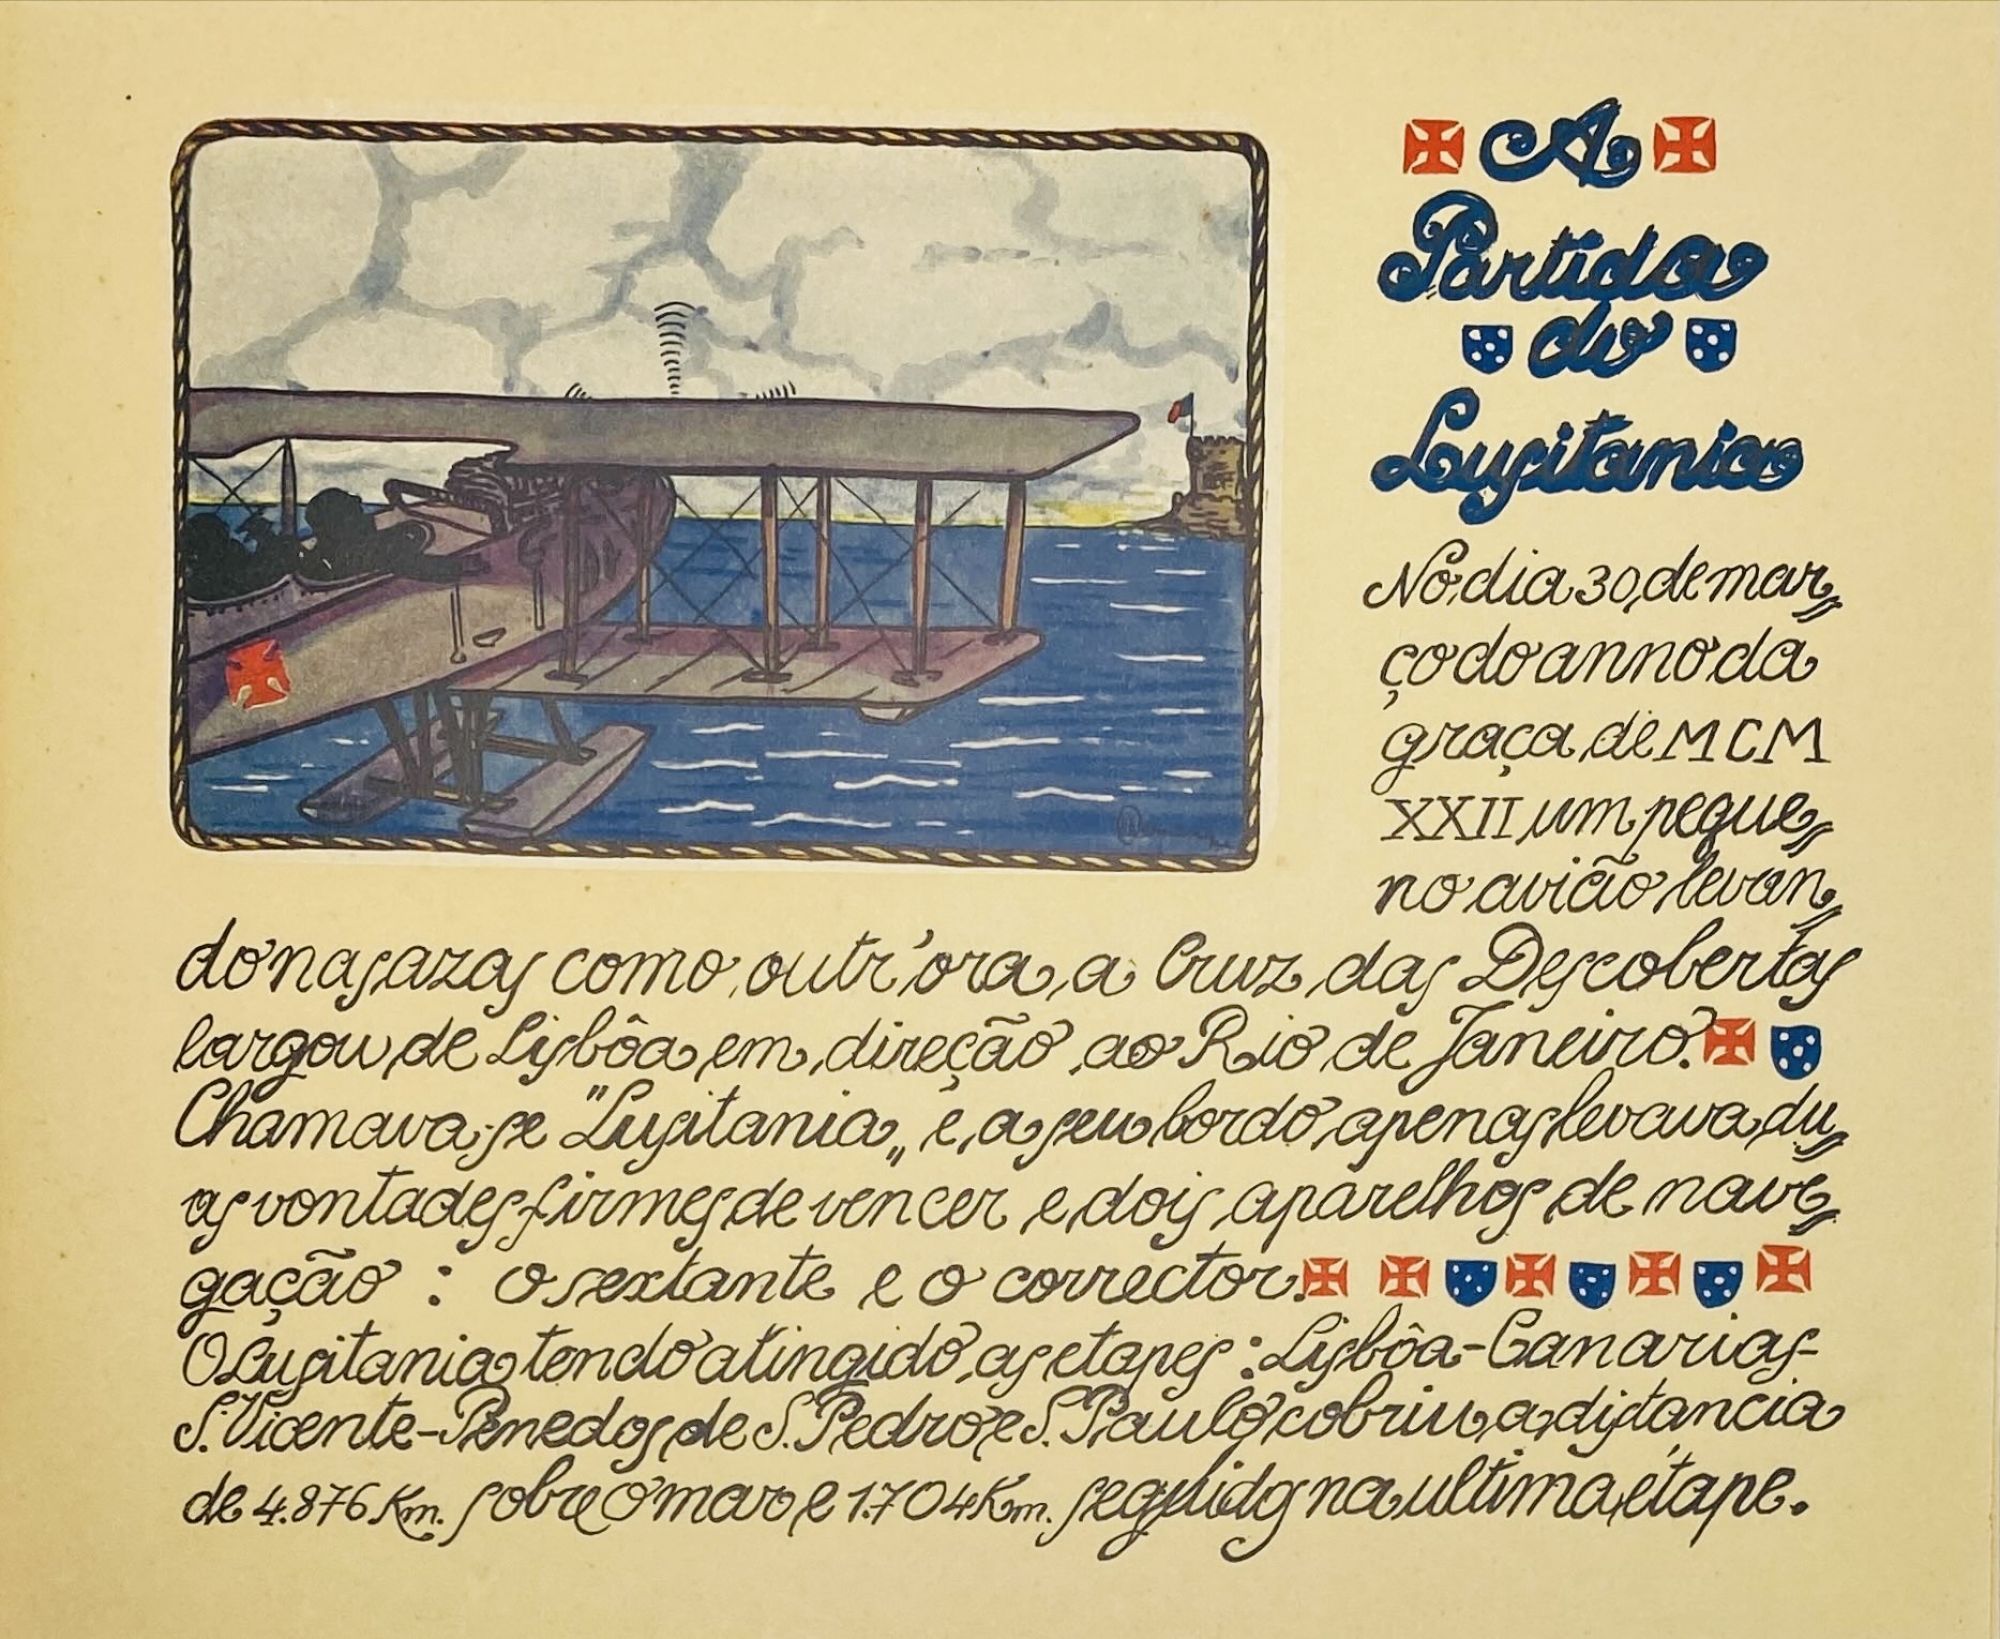 A
Partida
do
Lusitania
No dia 30 de mar=
ço do anno da
graça de MCM
XXII um peque=
no avião levan=
do nas azas como outr'ora, a Cruz das Descobertas
largou de Lisbôa em direção ao Rio de Janeiro.
Chamava-se "Lusitania„ e, a seu bordo, apenas levava du=
as vontades firmes de vencer e dois aparelhos de nave=
gação : o sextante e o corrector.
O Lusitania tendo atingido as etapes : Lisbôa-Canarias-
S. Vicente-Penedos de S. Pedro e S. Paulo cobriu a distancia
de 4.876 Km. sobre o mar e 1.704 Km. seguidos na ultima etape.